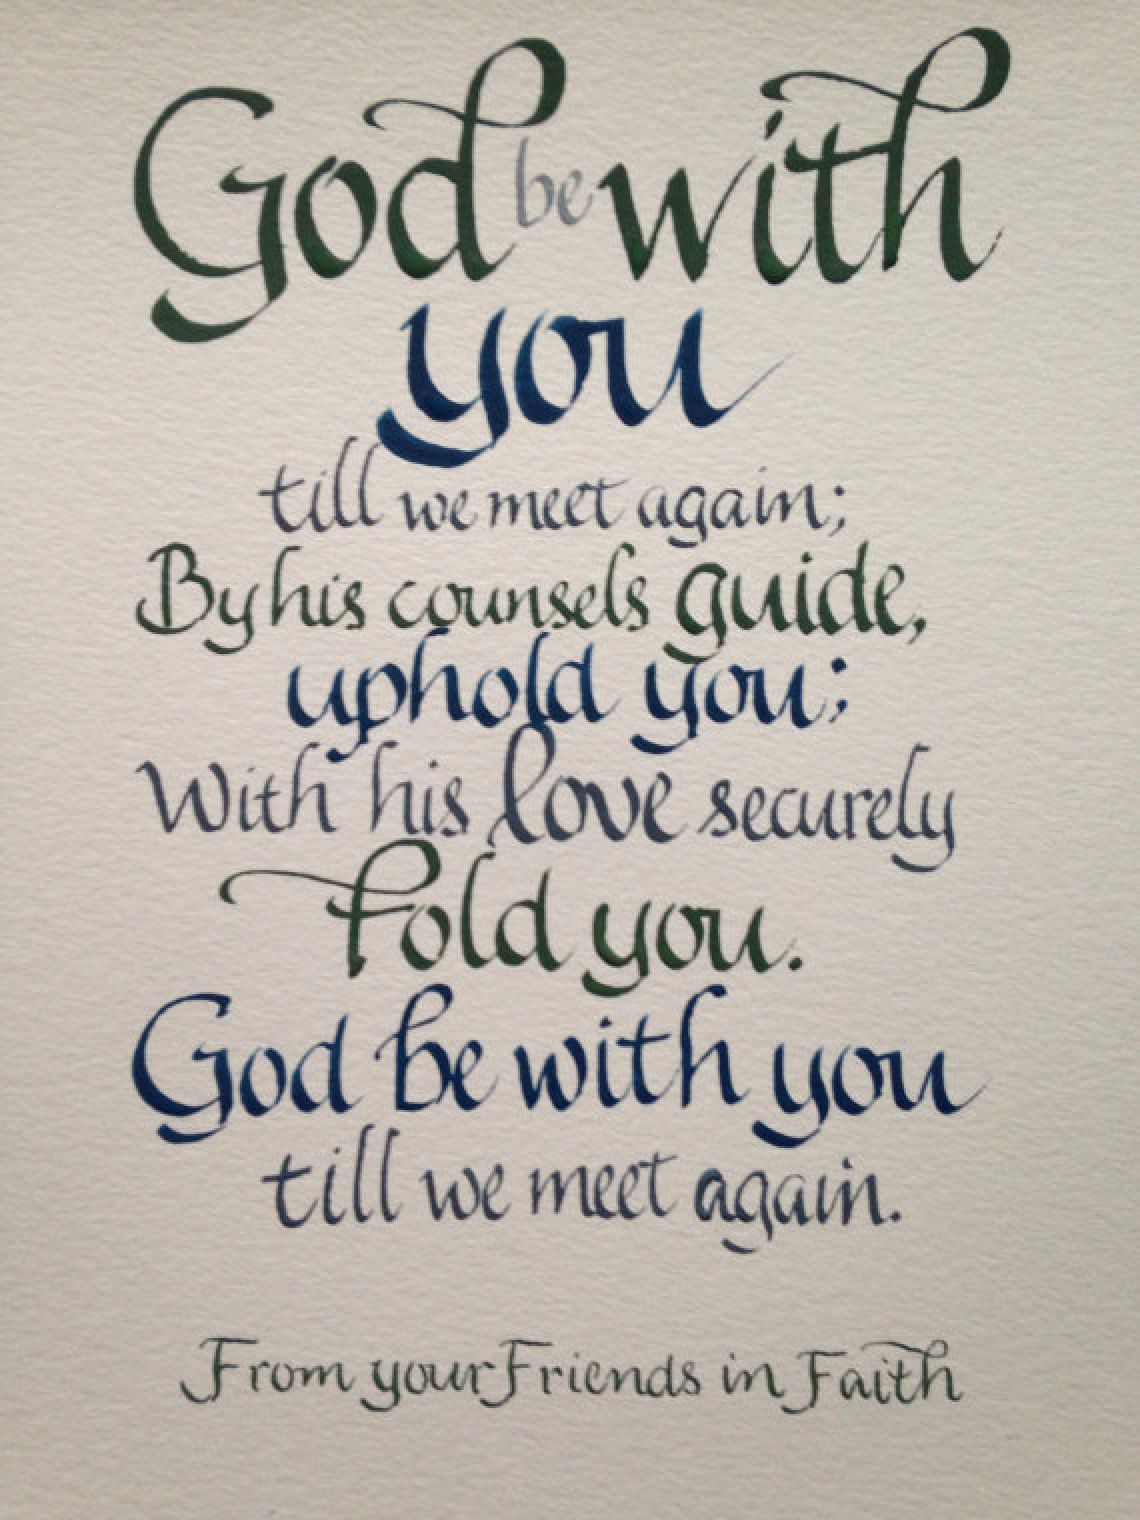 God be with
you
till we meet again;
By his counsels guide,
uphold you;
With his love securely
Fold you.
God be with you
till we meet again.
From your Friends in Faith